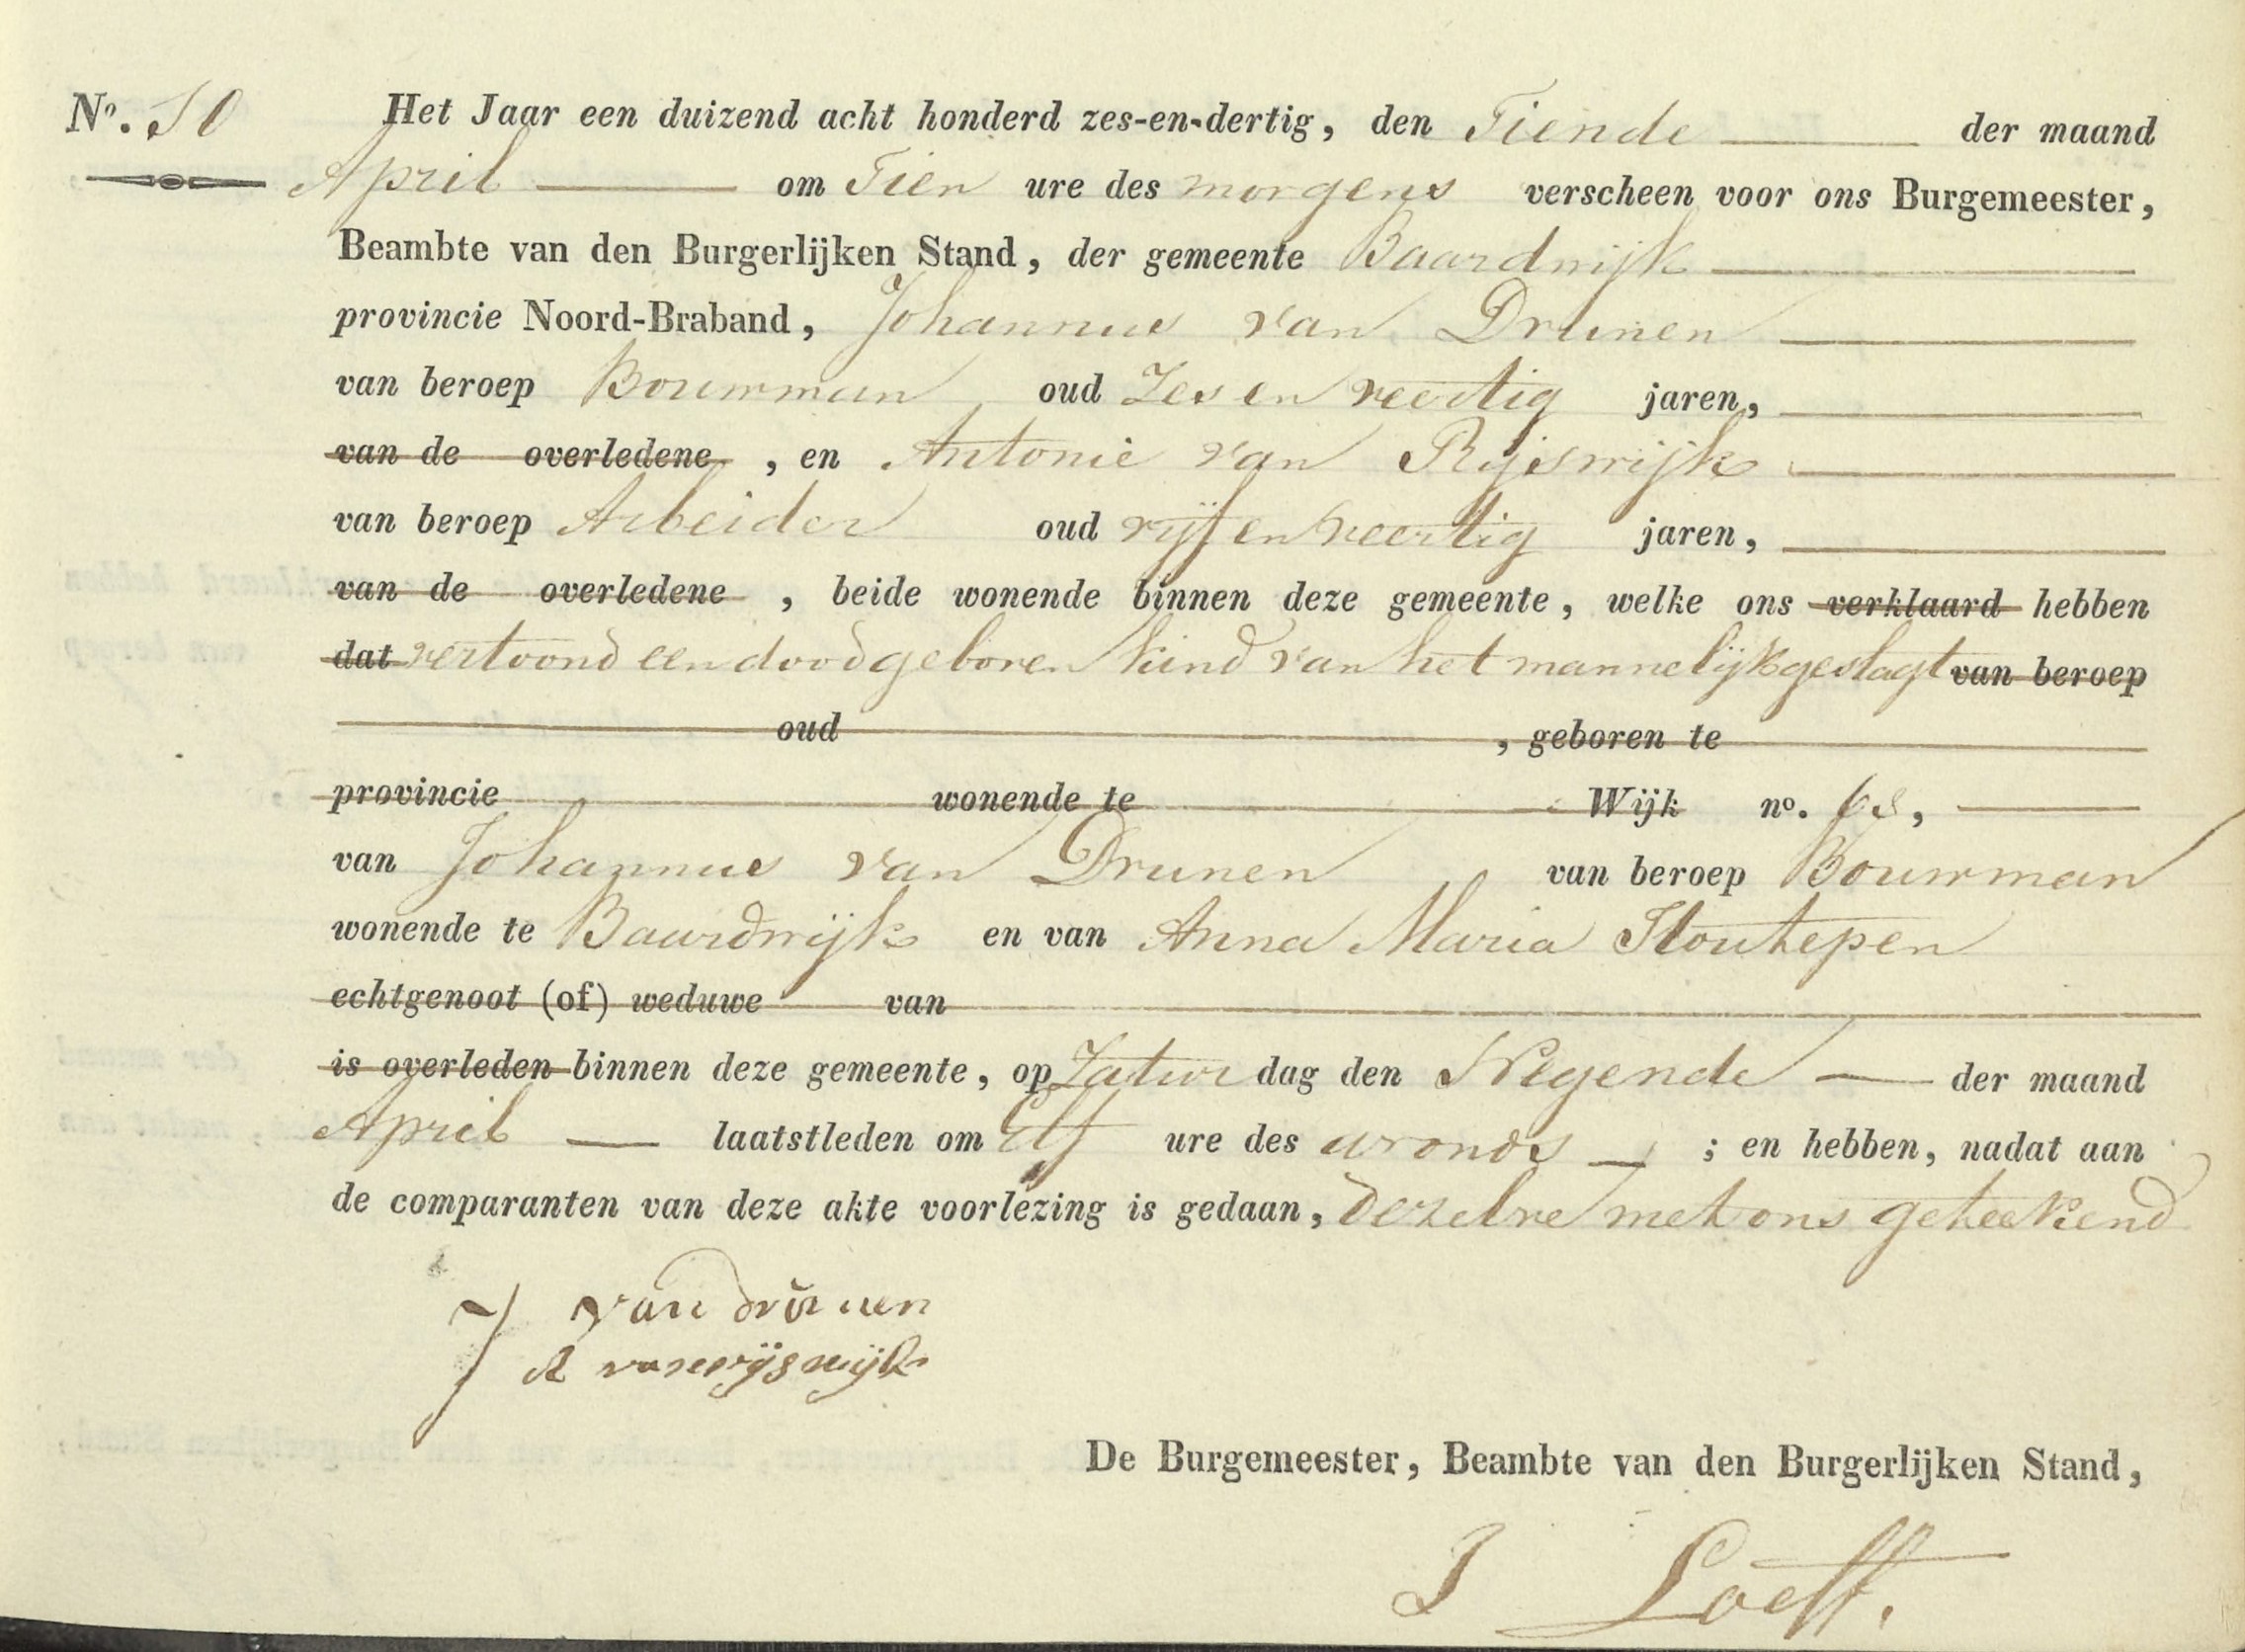 Nº. 10 Het Jaar een duizend acht honderd zes-en-dertig, den Tiende der maand
April om Tien ure des morgens verscheen voor ons Burgemeester,
Beambte van den Burgerlijken Stand, der gemeente Baardwijk
provincie Noord-Braband, Johannus van Drunen
van beroep Bouwman oud Zes en veertig jaren,
van de overledene, en Antonie van Rijswijk
van beroep Arbeider oud vijf en veertig jaren,
van de overledene, beide wonende binnen deze gemeente, welke ons verklaard hebben
dat vertoond een dood geboren kind van het mannelijk geslagt van beroep
oud , geboren te
provincie wonende te Wijk nº. 68,
van Johannus van Drunen van beroep Bouwman
wonende te Baardwijk en van Anna Maria Houtepen
echtgenoot (of) weduwe van
is overleden binnen deze gemeente, op Zatur dag den Negende der maand
April laatstleden om Elf ure des avonds ; en hebben, nadat aan
de comparanten van deze akte voorlezing is gedaan, dezelve met ons geteekend
J van drunen
A van rijswijk
De Burgemeester, Beambte van den Burgerlijken Stand,
J Loeff.